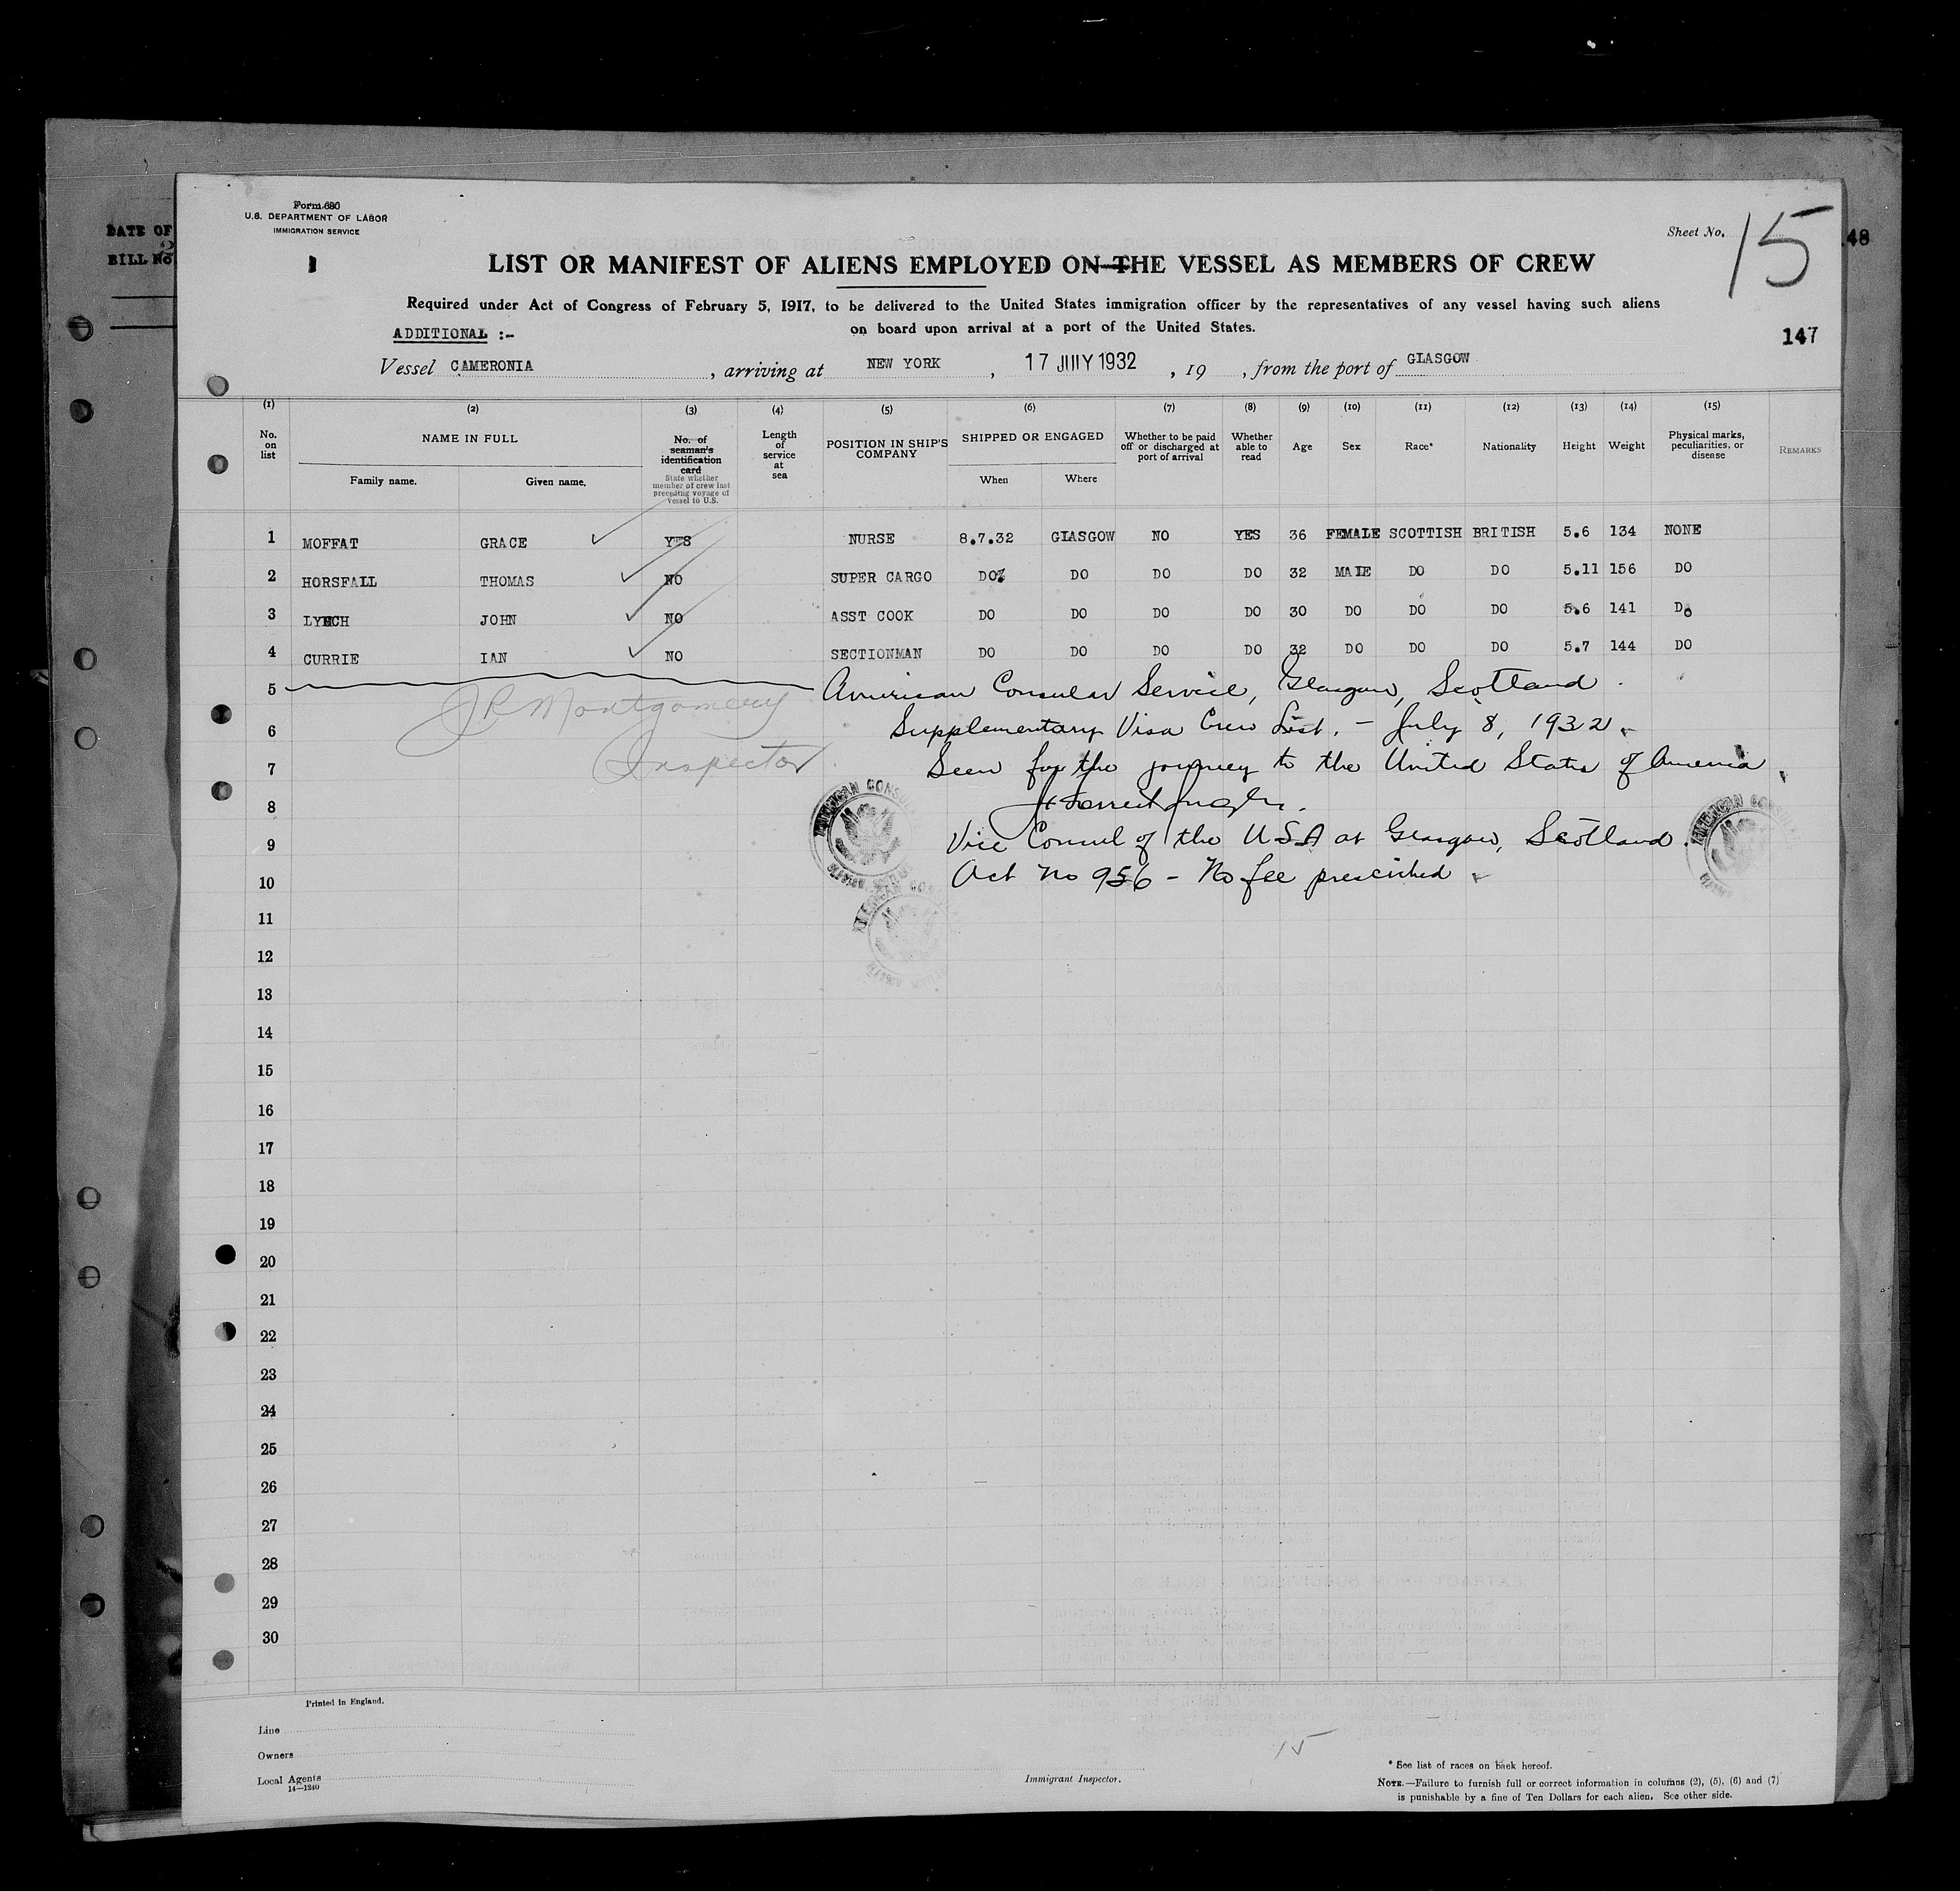 DATE OF
BILL No
48
Form 680
U.S. DEPARTMENT OF LABOR
IMMIGRATION SERVICE
Sheet No. 15
LIST OR MANIFEST OF ALIENS EMPLOYED ON THE VESSEL AS MEMBERS OF CREW
Required under Act of Congress of February 5, 1917, to be delivered to the United States immigration officer by the representatives of any vessel having such aliens
on board upon arrival at a port of the United States.
ADDITIONAL :-
147
Vessel CAMERONIA, arriving at NEW YORK, 17 JULY 1932, 19 , from the port of GLASGOW
(1) (2) (3) (4) (5) (6) (7) (8) (9) (10) (11) (12) (13) (14) (15)
No. on list NAME IN FULL Family name. Given name. No. of seaman's identification card State whether member of crew last preceding voyage of vessel to U.S. Length of service at sea POSITION IN SHIP'S COMPANY SHIPPED OR ENGAGED When Where Whether to be paid off or discharged at port of arrival Whether able to read Age Sex Race* Nationality Height Weight Physical marks, peculiarities, or disease REMARKS
1 MOFFAT GRACE YES NURSE 8.7.32 GLASGOW NO YES 36 FEMALE SCOTTISH BRITISH 5.6 134 NONE
2 HORSFALL THOMAS NO SUPER CARGO DO DO DO DO 32 MALE DO DO 5.11 156 DO
3 LYNCH JOHN NO ASST COOK DO DO DO DO 30 DO DO DO 5.6 141 Do
4 CURRIE IAN NO SECTIONMAN DO DO DO DO 32 DO DO DO 5.7 144 DO
5 American Consular Service, Glasgow, Scotland.
J R Montgomery
6 Supplementary Visa Crew List. - July 8, 1932.
Inspector
7 Seen for the journey to the United States of America.
8
9 Vice Consul of the USA at Glasgow, Scotland.
10 Act No 956 - No fee prescribed
AMERICAN CONSU
11
12
13
14
15
16
17
18
19
20
21
22
23
24
25
26
27
28
29
30
Printed in England.
Line
Owners
Local Agents
14—1240
Immigrant Inspector.
15
* See list of races on back hereof.
NOTE.—Failure to furnish full or correct information in columns (2), (5), (6) and (7)
is punishable by a fine of Ten Dollars for each alien. See other side.